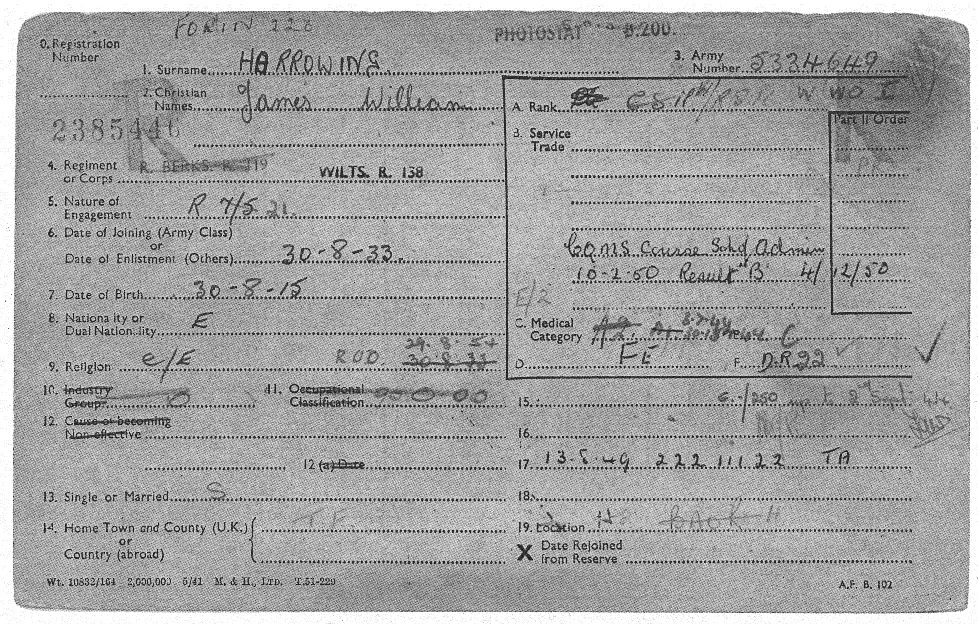 FORM 226
PHOTOSTAT 8.200.
0. Registration Number
1. Surname HARROWING
3. Army Number 5334649
2. Christian Names James William
A. Rank W WO I
Part II Order
23854
B. Service Trade
4. Regiment or Corps R. BERKS. R. 119 WILTS. R. 138
5. Nature of Engagement R 7/5 21.
6. Date of Joining (Army Class)
or
Date of Enlistment (Others) 30-8-33.
CQMS Course Sch of Admin
10-2-50 Result "B" 4/12/50
7. Date of Birth 30-8-15
E/2
8. Nationality or Dual Nationality E
C. Medical Category A1 C
9. Religion C/E ROD. 29.8.54 30.8.33
D. FE F. D.R22
10. Industry Group 0 11. Occupational Classification
15. 6./250 up to 2nd Sept. 44
12. Cause of becoming Non-effective
16.
12 (a) Date
17. 13-5-49 222 111 22 TA
13. Single or Married S
18.
14. Home Town and County (U.K.)
or
Country (abroad)
19. Location
X Date Rejoined from Reserve
Wt. 10832/164 2,000,000 5/41 M. & H., LTD. T.51-229
A.F. B. 102